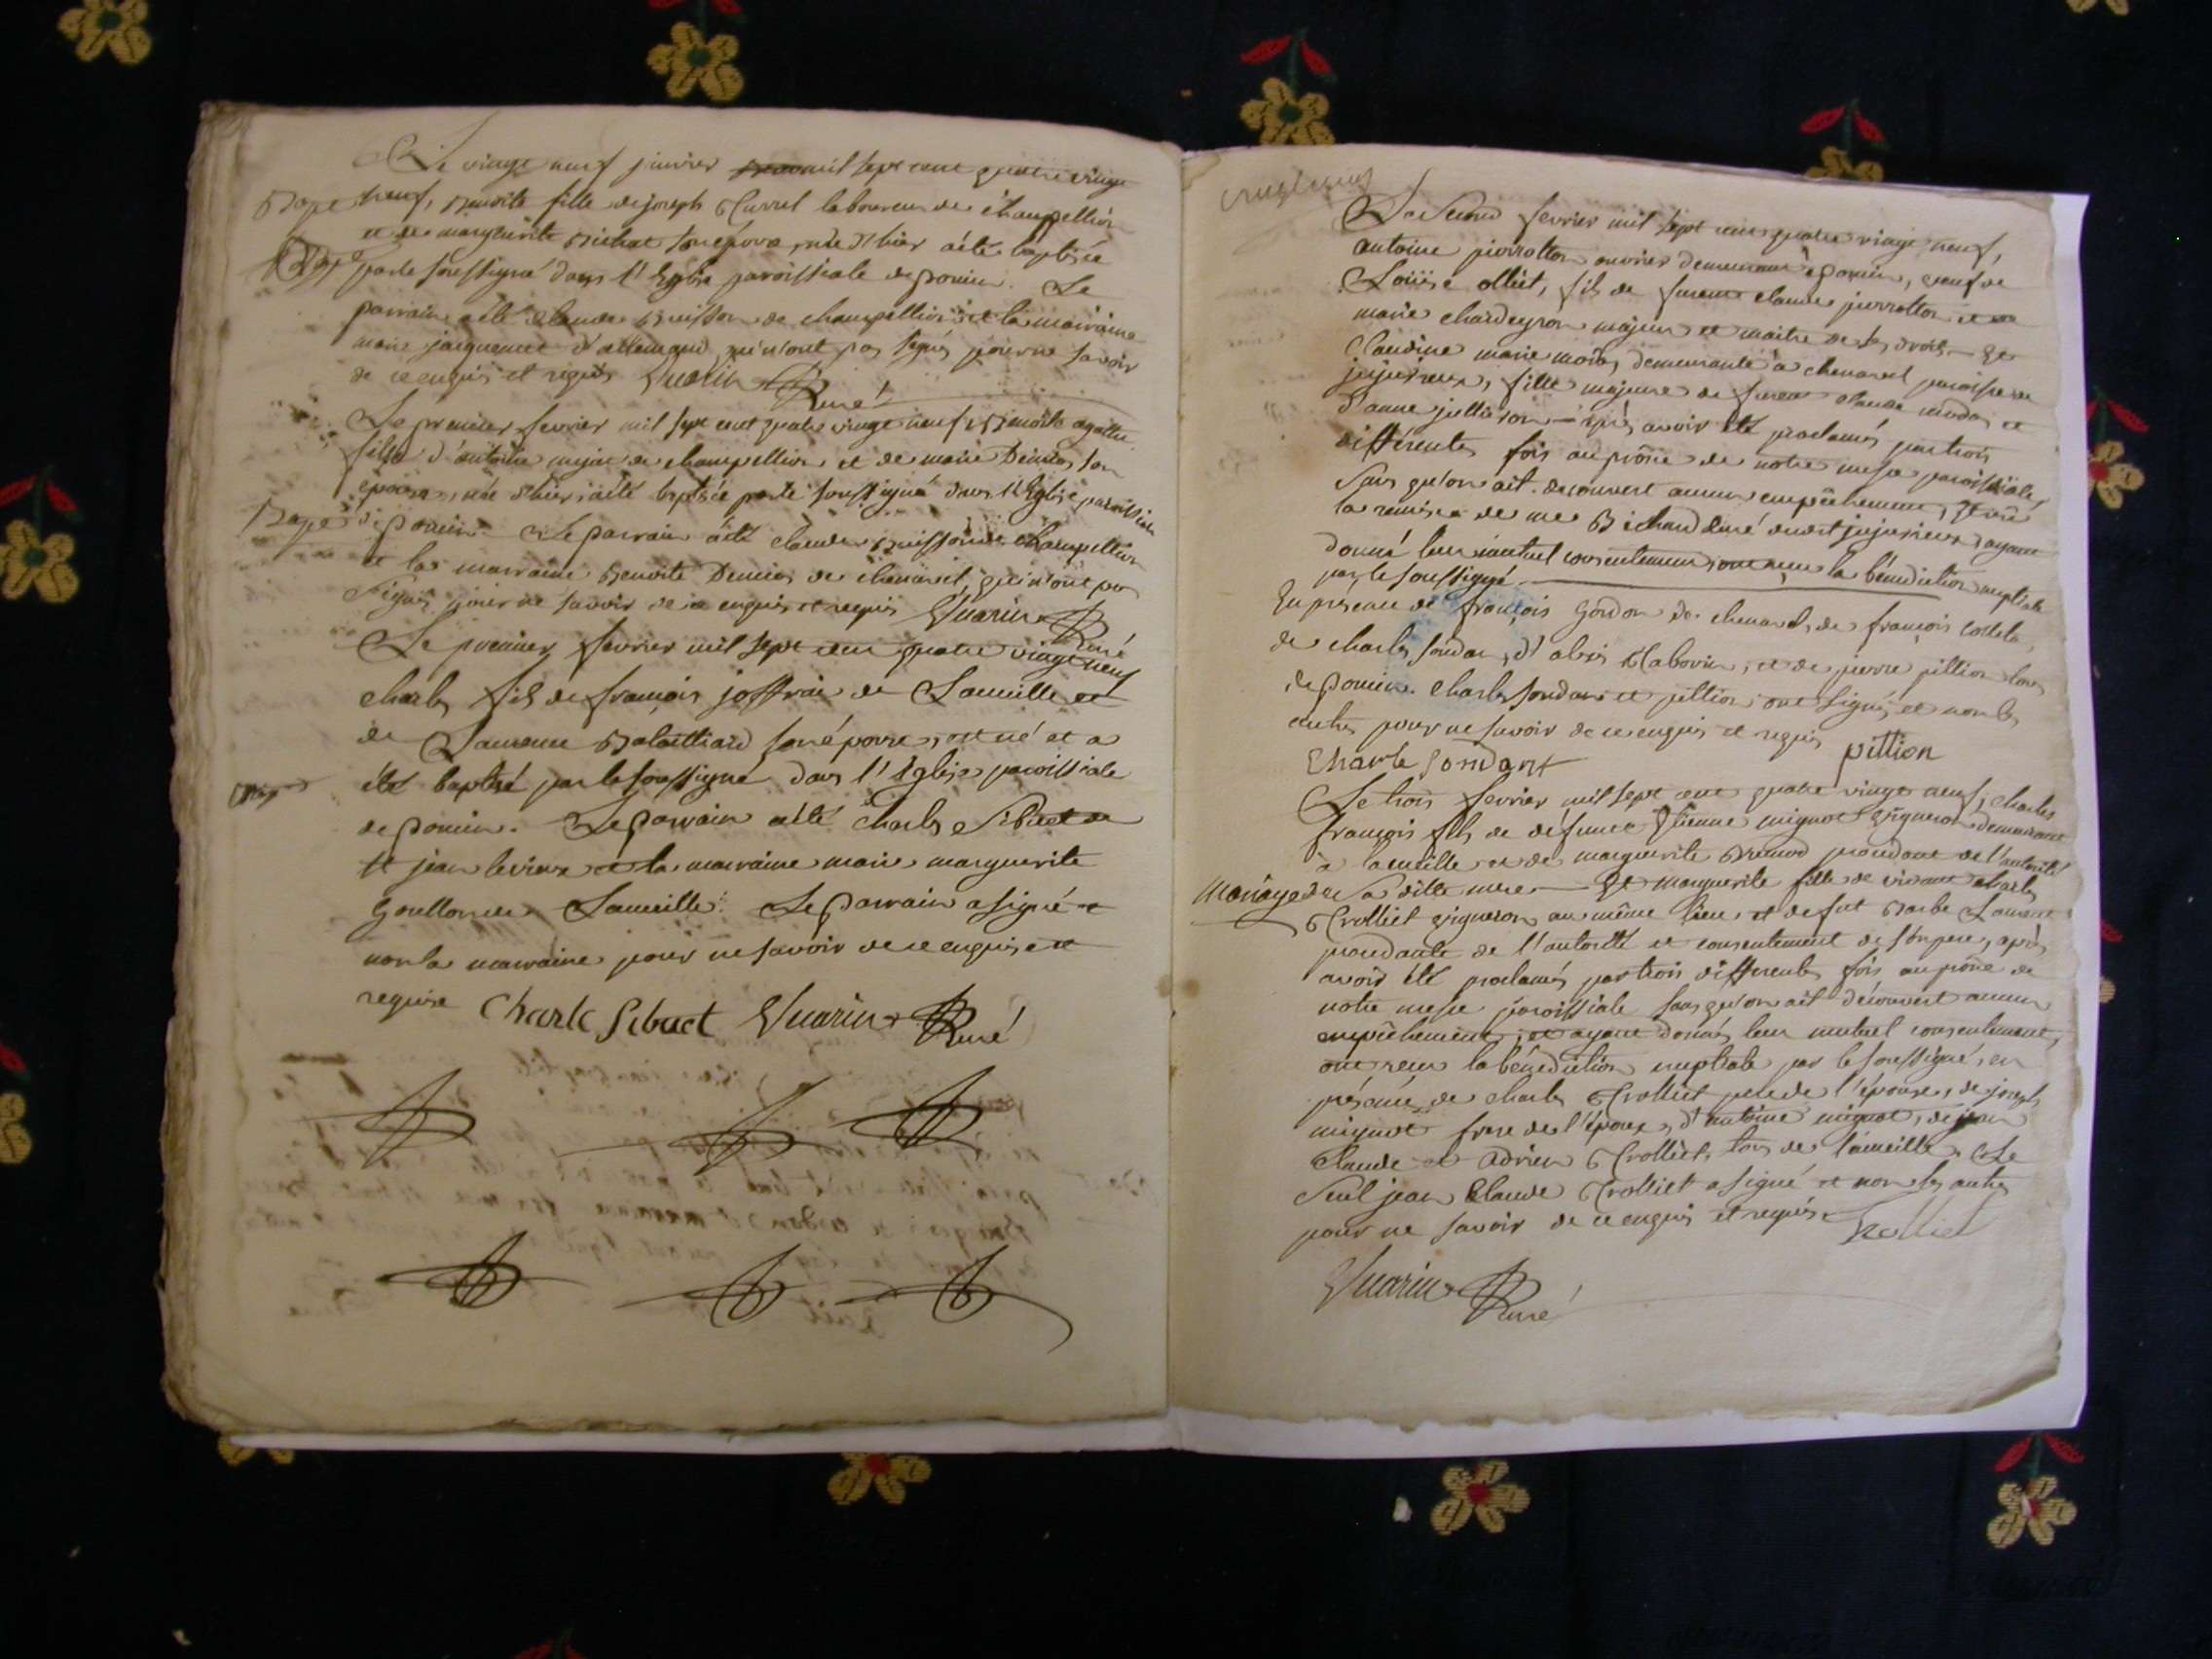 Le vingt neuf janvier mil sept cent quatre vingt
Bapt. neuf, Benoite fille de joseph Curvel laboureur de champellion
et de marguerite Bichat son épouse, née d'hier a été baptisée
par le soussigné dans l'Eglise paroissiale de poncin. Le
parrain a été claude Buisson de champellion et la marraine
marie jacquemet d'allemand, qui n'ont pas signés pour ne savoir
de ce enquis et requis Guarin Curé
Le premier fevrier mil sept cent quatre vingt neuf, Benoite agathe
fille d'antoine de champellion et de marie Demias son
épouse, née d'hier, a été baptisée par le soussigné dans l'Eglise paroissiale
Bapt. de poncin. Le parrain a été claude Buisson de champellion
et la marraine Benoite Demias de chenavel, qui n'ont pas
signés pour ne savoir de ce enquis et requis Guarin Curé
Le premier fevrier mil sept cent quatre vingt neuf
charles fils de françois joffrai de Lameille et
de Laurence Balailliard son épouse, est né et a
été baptisé par le soussigné dans l'Eglise paroissiale
de poncin. Le parrain a été charles Sibuet de
st jean le vieux et la marraine marie marguerite
Goullon de Lameille. Le parrain a signé et
non la marraine pour ne savoir de ce enquise et
requise Charle Sibuet Guarin Curé
Le second fevrier mil sept cent quatre vingt neuf,
antoine pierrotton ouvrier demeurant à poncin, veuf de
Loüise olliet, fils de furent claude pierrotton et de
marie chardeyron majeur et maitre de ses droits — Et
Claudine marie modas, demeurante à chenavel paroisse de
jujurieux, fille majeure de furent claude modas et
d'anne jullieron — après avoir été proclamés par trois
différentes fois au prône de notre messe paroissiale,
sans qu'on ait decouvert aucun empêchement, et vue
la remise de me Bichaud curé dudit jujurieux, ayant
donné leur mutuel consentement, ont reçu la bénédiction nuptiale
par le soussigné
En présence de françois Gordon de chenavel, de françois
de charles sondar, d'alexis Chaborin, et de pierre pittion tous
de poncin. charles sondar et pittion ont signés et non les
autres pour ne savoir de ce enquis et requis pittion
Charle Sondart
Le trois fevrier mil sept cent quatre vingt neuf, charles
françois fils de défunt Etienne mignot vigneron demeurant
à Lameille et de marguerite Brenod procédant de l'autorité
Mariage de Sa ditte mere — Et marguerite fille de vivant charles
Trolliet vigneron au même lieu et de fut Barbe Laurent
procédante de l'autorité et consentement de son pere, après
avoir été proclamés par trois differentes fois au prône de
notre messe paroissiale sans qu'on ait découvert aucun
empêchement, et ayant donnés leur mutuel consentement,
ont reçu la bénédiction nuptiale par le soussigné, en
présence de charles Trolliet pere de l'épouse, de joseph
mignot frere de l'époux, d'antoine mignot, de jean
Claude et Adrien Trolliet, tous de Lameille. Le
seul jean Claude Trolliet a signé et non les autres
pour ne savoir de ce enquis et requis. Trolliet
Guarin Curé